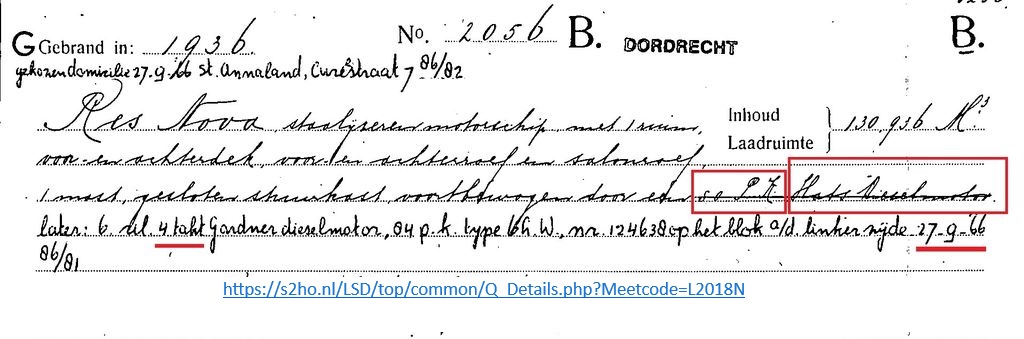 1236
G Gebrand in: 1936. No. 2056 B. DORDRECHT B.
gekozen domicilie 27-9-66 St. Annaland, Curéstraat 7 86/82
Res Nova, staalijzeren motorschip met 1 ruim, Inhoud Laadruimte } 130,936 M³
voor- en achterdek, voor- en achterroef en salonroef,
1 mast, gesloten stuurkast voortbewogen door een 50 P.K. Hats Dieselmotor.
later: 6 cil. 4 takt Gardner dieselmotor, 84 p.k. type 6L.W., nr. 124638 op het blok a/d linker zijde 27-9-66
86/81
https://s2ho.nl/LSD/top/common/Q_Details.php?Meetcode=L2018N